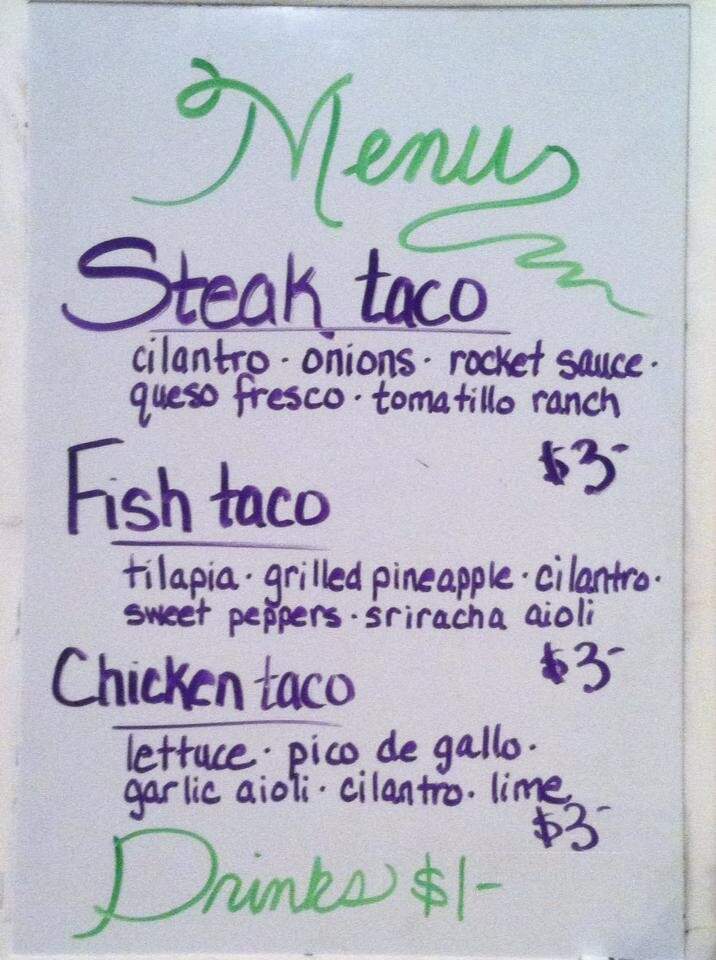 Menu
Steak taco
cilantro · onions · rocket sauce ·
queso fresco · tomatillo ranch
$3-
Fish taco
tilapia · grilled pineapple · cilantro ·
sweet peppers · sriracha aioli
$3-
Chicken taco
lettuce · pico de gallo ·
garlic aioli · cilantro · lime
$3-
Drinks $1-